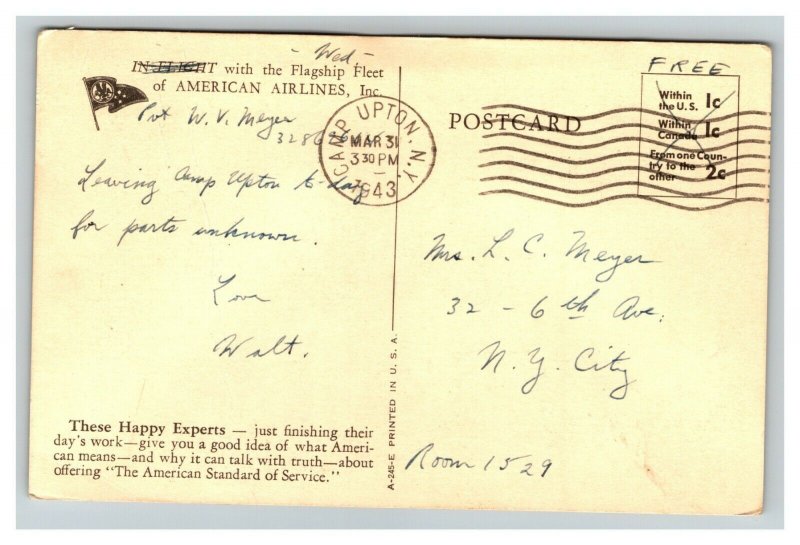 - Wed -
IN FLIGHT with the Flagship Fleet
of AMERICAN AIRLINES, Inc.
Pvt W. V. Meyer
Leaving Camp Upton to-day
for parts unknown.
Love
Walt.
These Happy Experts — just finishing their
day's work—give you a good idea of what Ameri-
can means—and why it can talk with truth—about
offering "The American Standard of Service."
A-245-E PRINTED IN U.S.A.
CAMP UPTON, N.Y.
MAR 31
3 30 PM
1943
POSTCARD
FREE
Within
the U.S. 1c
Within
Canada 1c
From one Coun-
try to the
other 2c
Mrs. L. C. Meyer
32 - 6th Ave.
N.Y. City
Room 1529